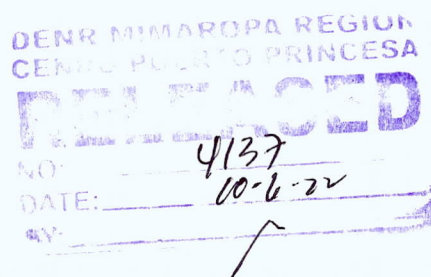 DENR MIMAROPA REGION
CENRO PUERTO PRINCESA
RELEASED
NO: 4137
DATE: 10-6-22
BY: